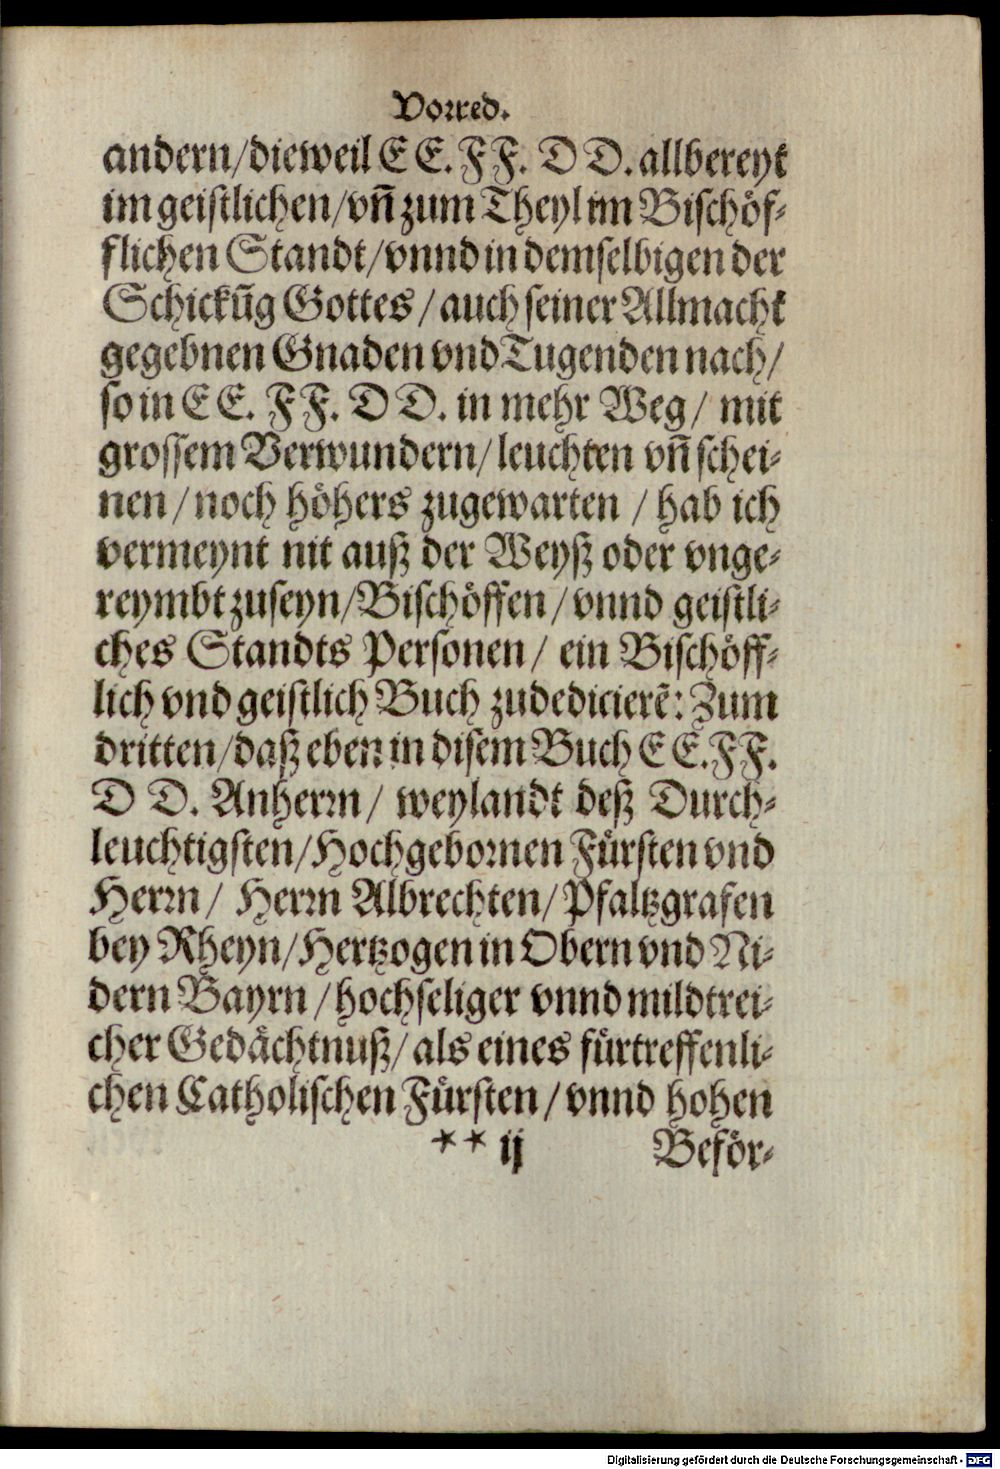 Vorred.
andern/dieweil E E. F F. D D. allbereyt
im geistlichen/vñ zum Theyl im Bischöf-
flichen Standt/vnnd in demselbigen der
Schickũg Gottes/auch seiner Allmacht
gegebnen Gnaden vnd Tugenden nach/
so in E E. F F. D D. in mehr Weg/ mit
grossem Verwundern/leuchten vñ schei-
nen/noch höhers zugewarten/hab ich
vermeynt nit auß der Weyß oder vnge-
reymbt zuseyn/Bischöffen/vnnd geistli-
ches Standts Personen/ ein Bischöff-
lich vnd geistlich Buch zudediciere͂: Zum
dritten/daß eben in disem Buch E E. F F.
D D. Anherrn/ weylandt deß Durch-
leuchtigsten/Hochgebornen Fürsten vnd
Herrn/ Herrn Albrechten/Pfaltzgrafen
bey Rheyn/Hertzogen in Obern vnd Ni-
dern Bayrn/hochseliger vnnd mildtrei-
cher Gedächtnuß/als eines fürtreffenli-
chen Catholischen Fürsten/vnnd hohen
** ij Beför-
Digitalisierung gefördert durch die Deutsche Forschungsgemeinschaft - DFG